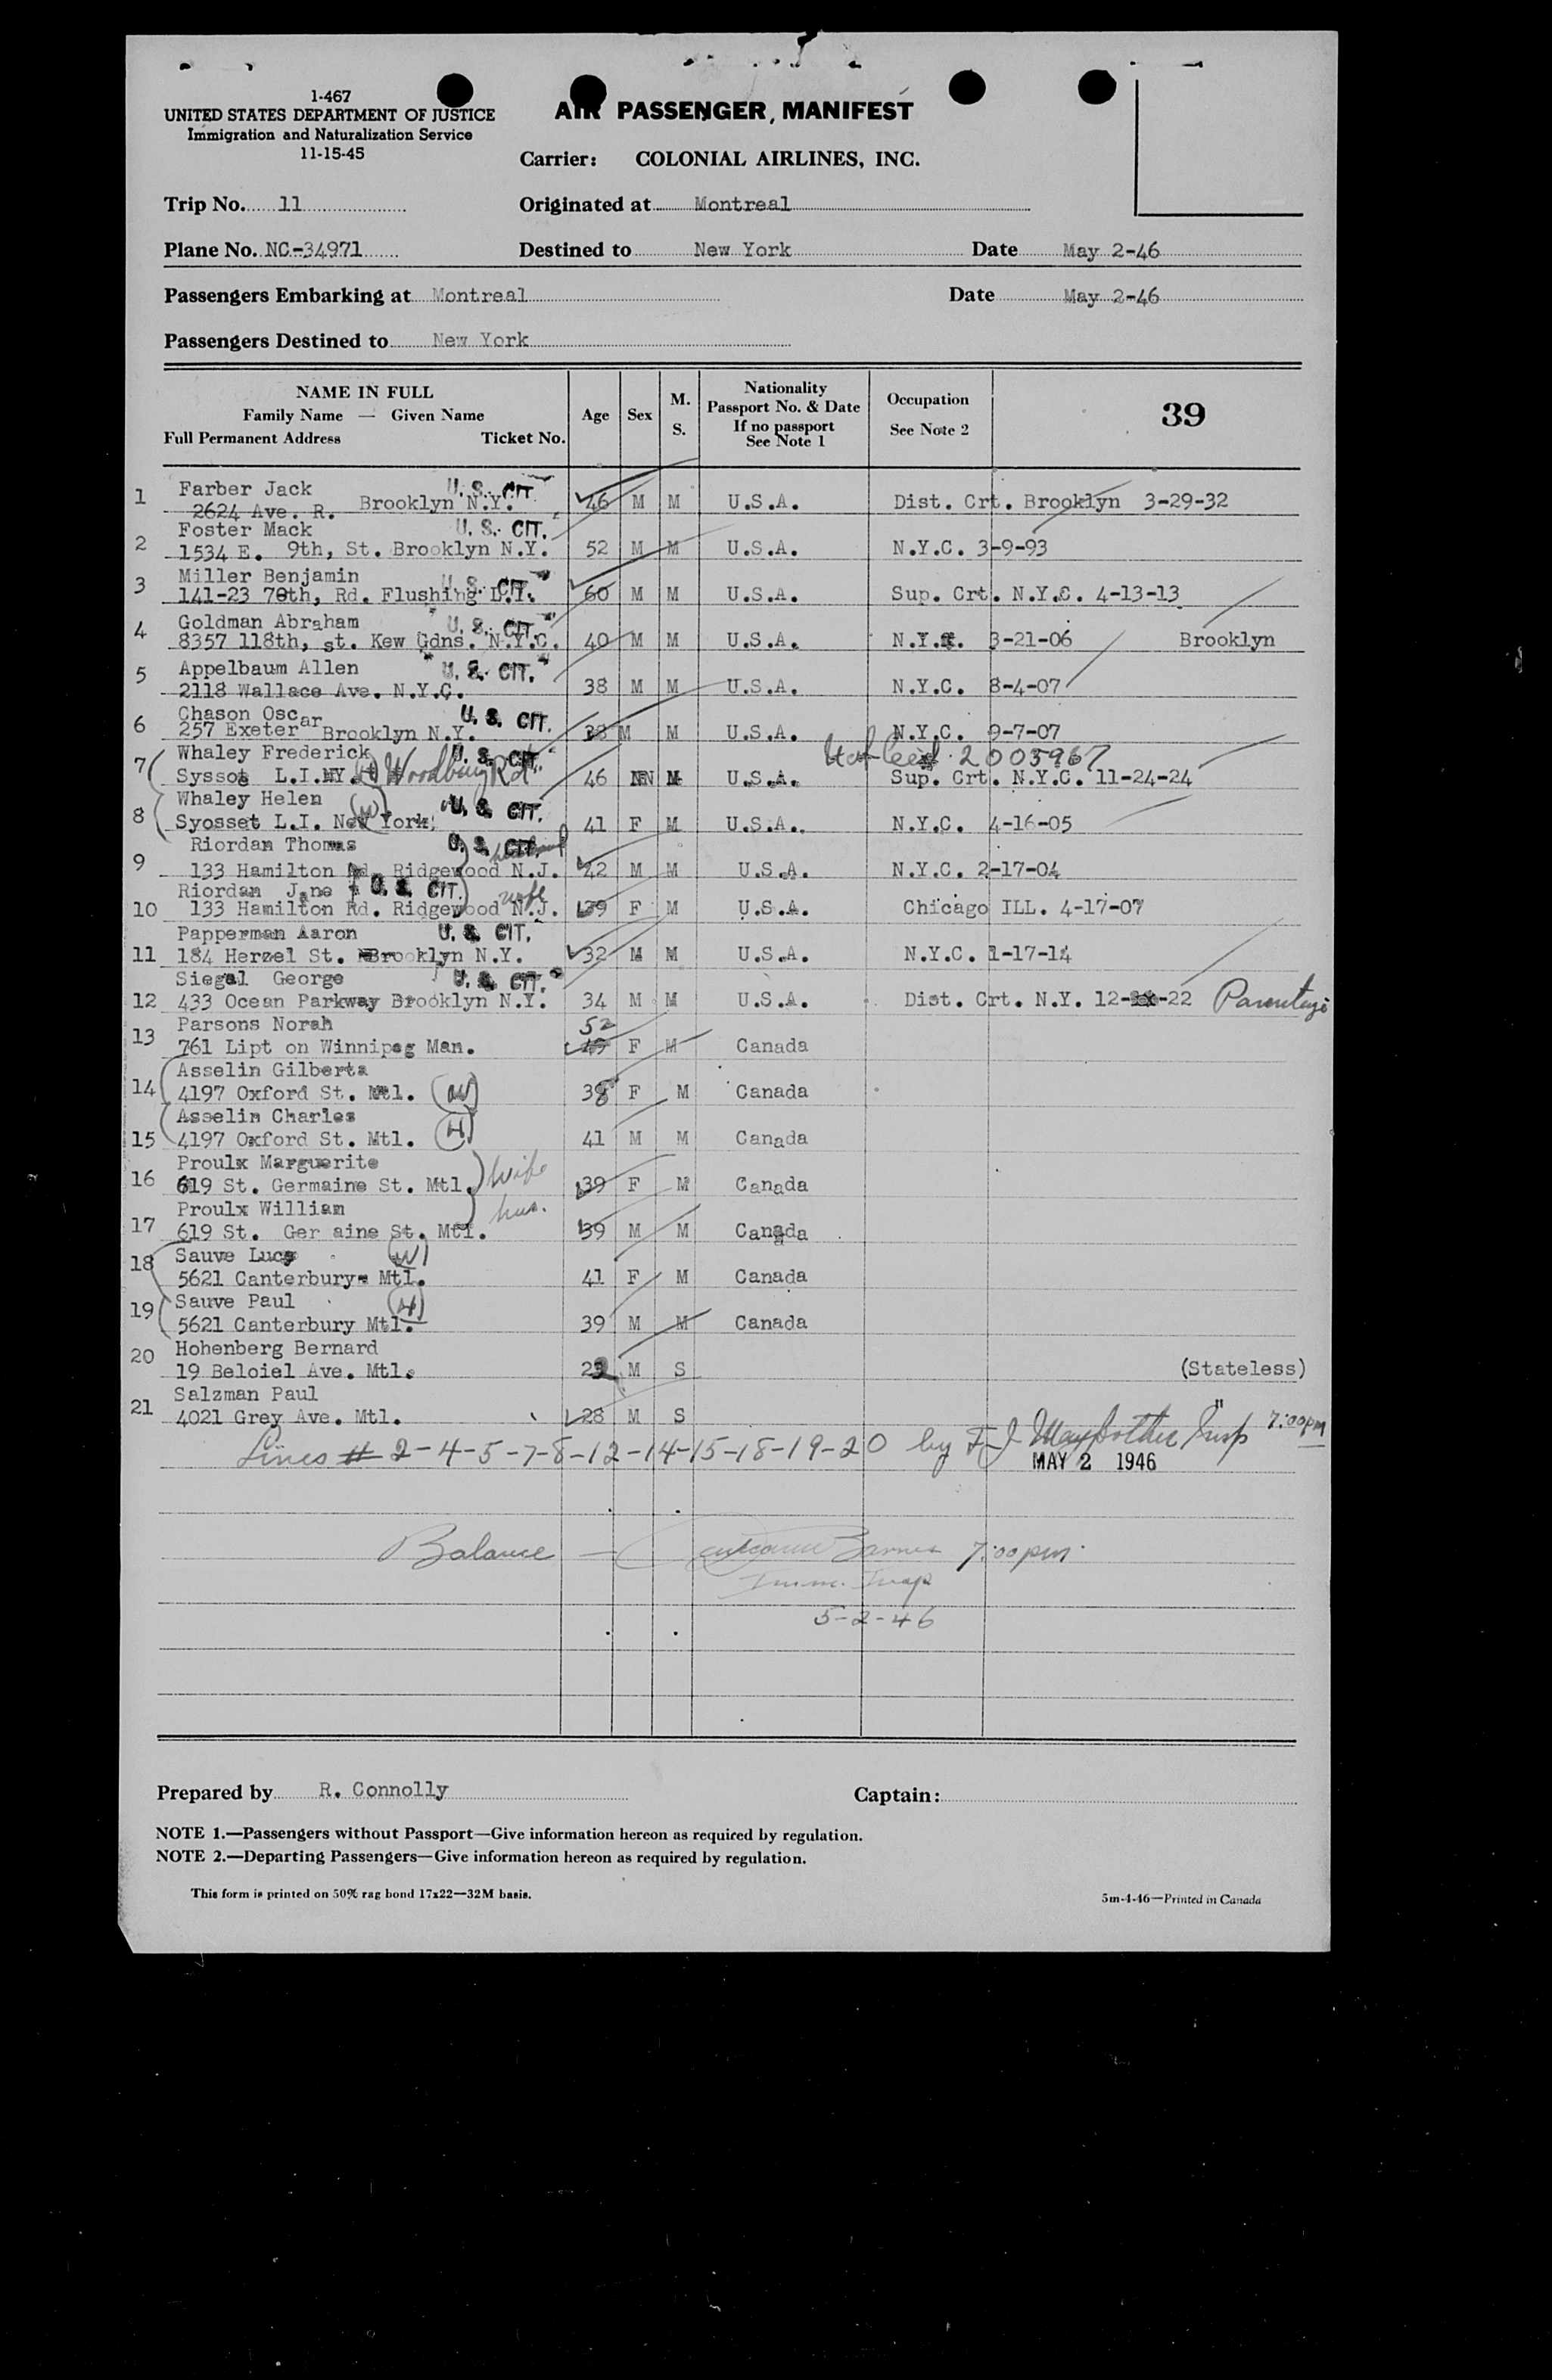 1-467
UNITED STATES DEPARTMENT OF JUSTICE
Immigration and Naturalization Service
11-15-45
AIR PASSENGER MANIFEST
Carrier: COLONIAL AIRLINES, INC.
Trip No. 11 Originated at Montreal
Plane No. NC-34971 Destined to New York Date May 2-46
Passengers Embarking at Montreal Date May 2-46
Passengers Destined to New York
NAME IN FULL
Family Name — Given Name
Full Permanent Address Ticket No.
Age
Sex
M.
S.
Nationality
Passport No. & Date
If no passport
See Note 1
Occupation
See Note 2
39
1 Farber Jack U. S. CIT.
2624 Ave. R. Brooklyn N.Y. 46 M M U.S.A. Dist. Crt. Brooklyn 3-29-32
2 Foster Mack U. S. CIT.
1534 E. 9th, St. Brooklyn N.Y. 52 M M U.S.A. N.Y.C. 3-9-93
3 Miller Benjamin U. S. CIT.
141-23 78th, Rd. Flushing L.I. 60 M M U.S.A. Sup. Crt. N.Y.C. 4-13-13
4 Goldman Abraham U. S. CIT.
8357 118th, st. Kew Gdns. N.Y.C. 40 M M U.S.A. N.Y. 3-21-06 Brooklyn
5 Appelbaum Allen U. S. CIT.
2118 Wallace Ave. N.Y.C. 38 M M U.S.A. N.Y.C. 8-4-07
6 Chason Oscar U. S. CIT.
257 Exeter Brooklyn N.Y. 38 M M U.S.A. N.Y.C. 9-7-07
7 Whaley Frederick U. S. CIT. 2003967
Syssot L.I.NY. (H) Woodbury Rd. 46 M M U.S.A. Sup. Crt. N.Y.C. 11-24-24
8 Whaley Helen (W) U. S. CIT.
Syosset L.I. New York, 41 F M U.S.A. N.Y.C. 4-16-05
9 Riordan Thomas U. S. CIT. husband
133 Hamilton Rd. Ridgewood N.J. 42 M M U.S.A. N.Y.C. 2-17-04
10 Riordan Jane U. S. CIT. wife
133 Hamilton Rd. Ridgewood N.J. 39 F M U.S.A. Chicago ILL. 4-17-07
11 Papperman Aaron U. S. CIT.
184 Herzel St. Brooklyn N.Y. 32 M M U.S.A. N.Y.C. 1-17-14
12 Siegal George U. S. CIT.
433 Ocean Parkway Brooklyn N.Y. 34 M M U.S.A. Dist. Crt. N.Y. 12- -22 Parentage
13 Parsons Norah 52
761 Lipt on Winnipeg Man. 49 F M Canada
14 Asselin Gilberta
4197 Oxford St. Mtl. (W) 38 F M Canada
15 Asselin Charles
4197 Oxford St. Mtl. (H) 41 M M Canada
16 Proulx Marguerite
619 St. Germaine St. Mtl. wife 39 F M Canada
17 Proulx William hus.
619 St. Ger aine St. Mtl. 39 M M Canada
18 Sauve Lucy (W)
5621 Canterbury Mtl. 41 F M Canada
19 Sauve Paul (H)
5621 Canterbury Mtl. 39 M M Canada
20 Hohenberg Bernard
19 Beloiel Ave. Mtl. M S (Stateless)
21 Salzman Paul
4021 Grey Ave. Mtl. 28 M S "
Lines # 2-4-5-7-8-12-14-15-18-19-20 by F J Insp 7:00pm
MAY 2 1946
Balance — Barnes 7:00 pm.
Imm. Insp
5-2-46
Prepared by R. Connolly Captain:
NOTE 1.—Passengers without Passport—Give information hereon as required by regulation.
NOTE 2.—Departing Passengers—Give information hereon as required by regulation.
This form is printed on 50% rag bond 17x22—32M basis. 5m-4-46—Printed in Canada